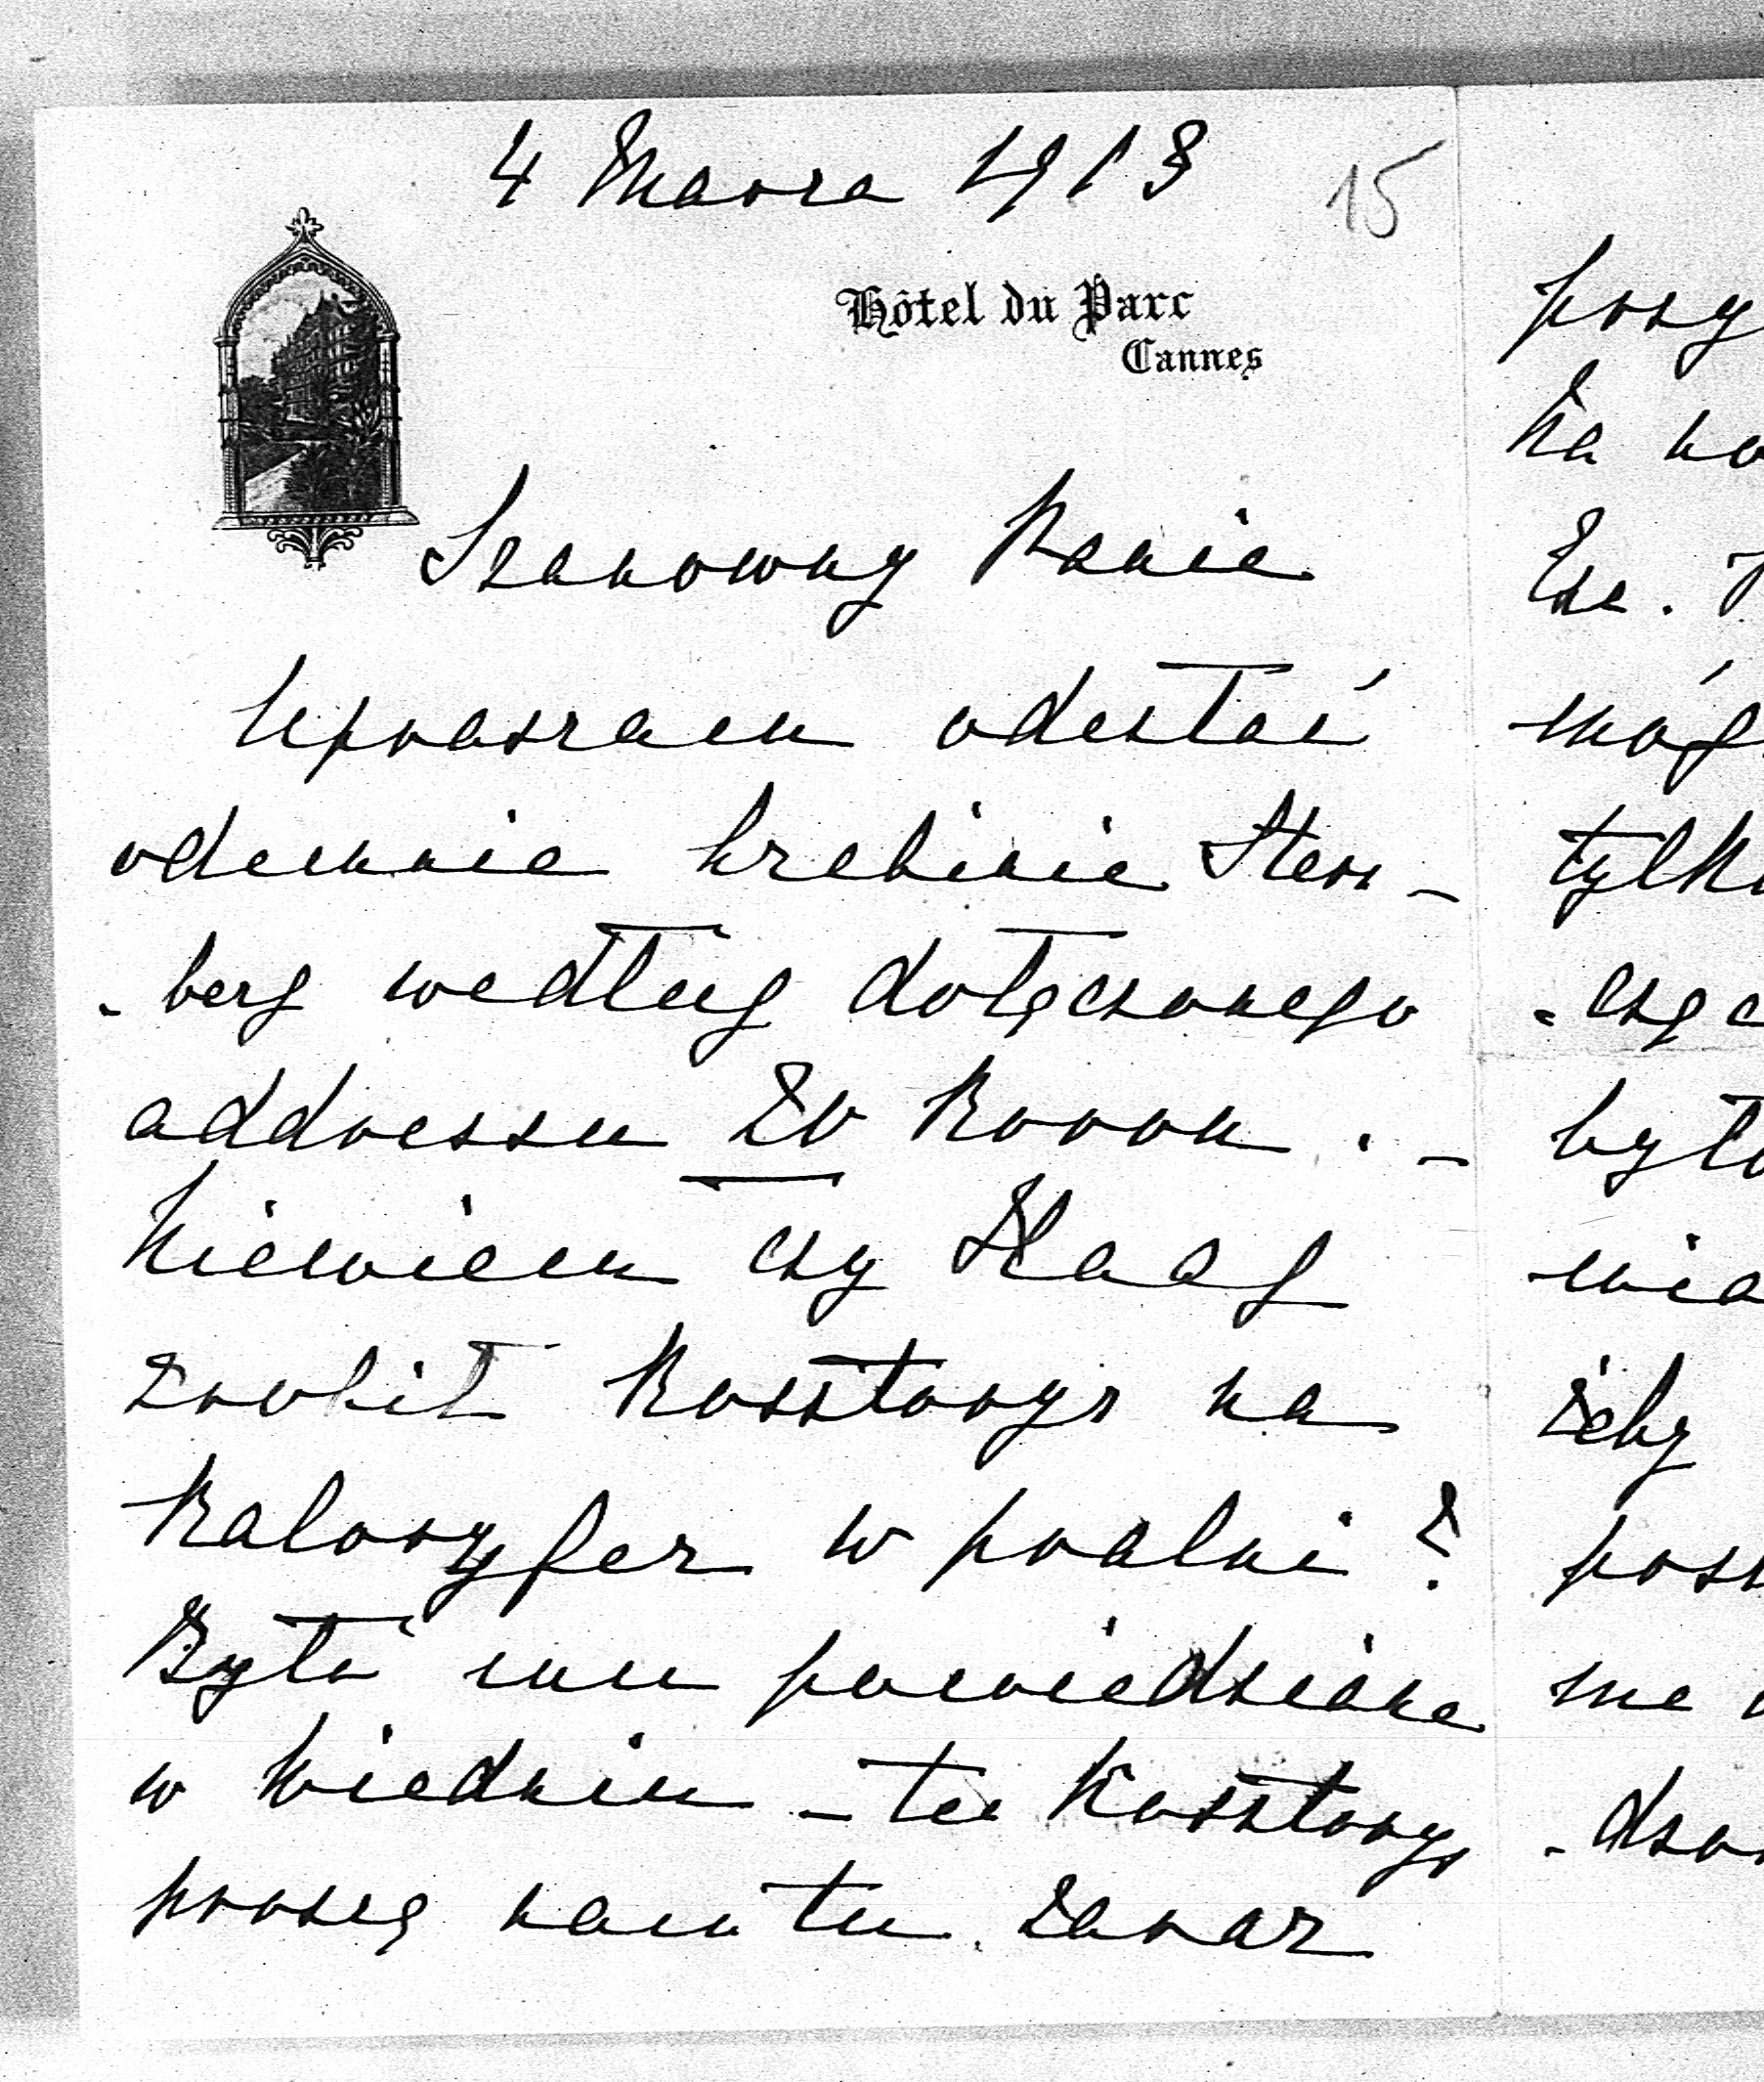 4 Marca 1913
15
Hôtel du Parc
Cannes
Szanowny Panie
Upraszam odesłać
odemnie hrabinie Stern-
-berg według dołączonego
addressu 20 Koron. -
Niewiem czy Haag
zrobił Kosztorys na
Kaloryfer w pralni?
Było mu powiedziane
w Wiedniu - ten Kosztorys
proszę nam tu zaraz
posy
ka
móg
tylk
-czą
było
wia
żeby
posz
me